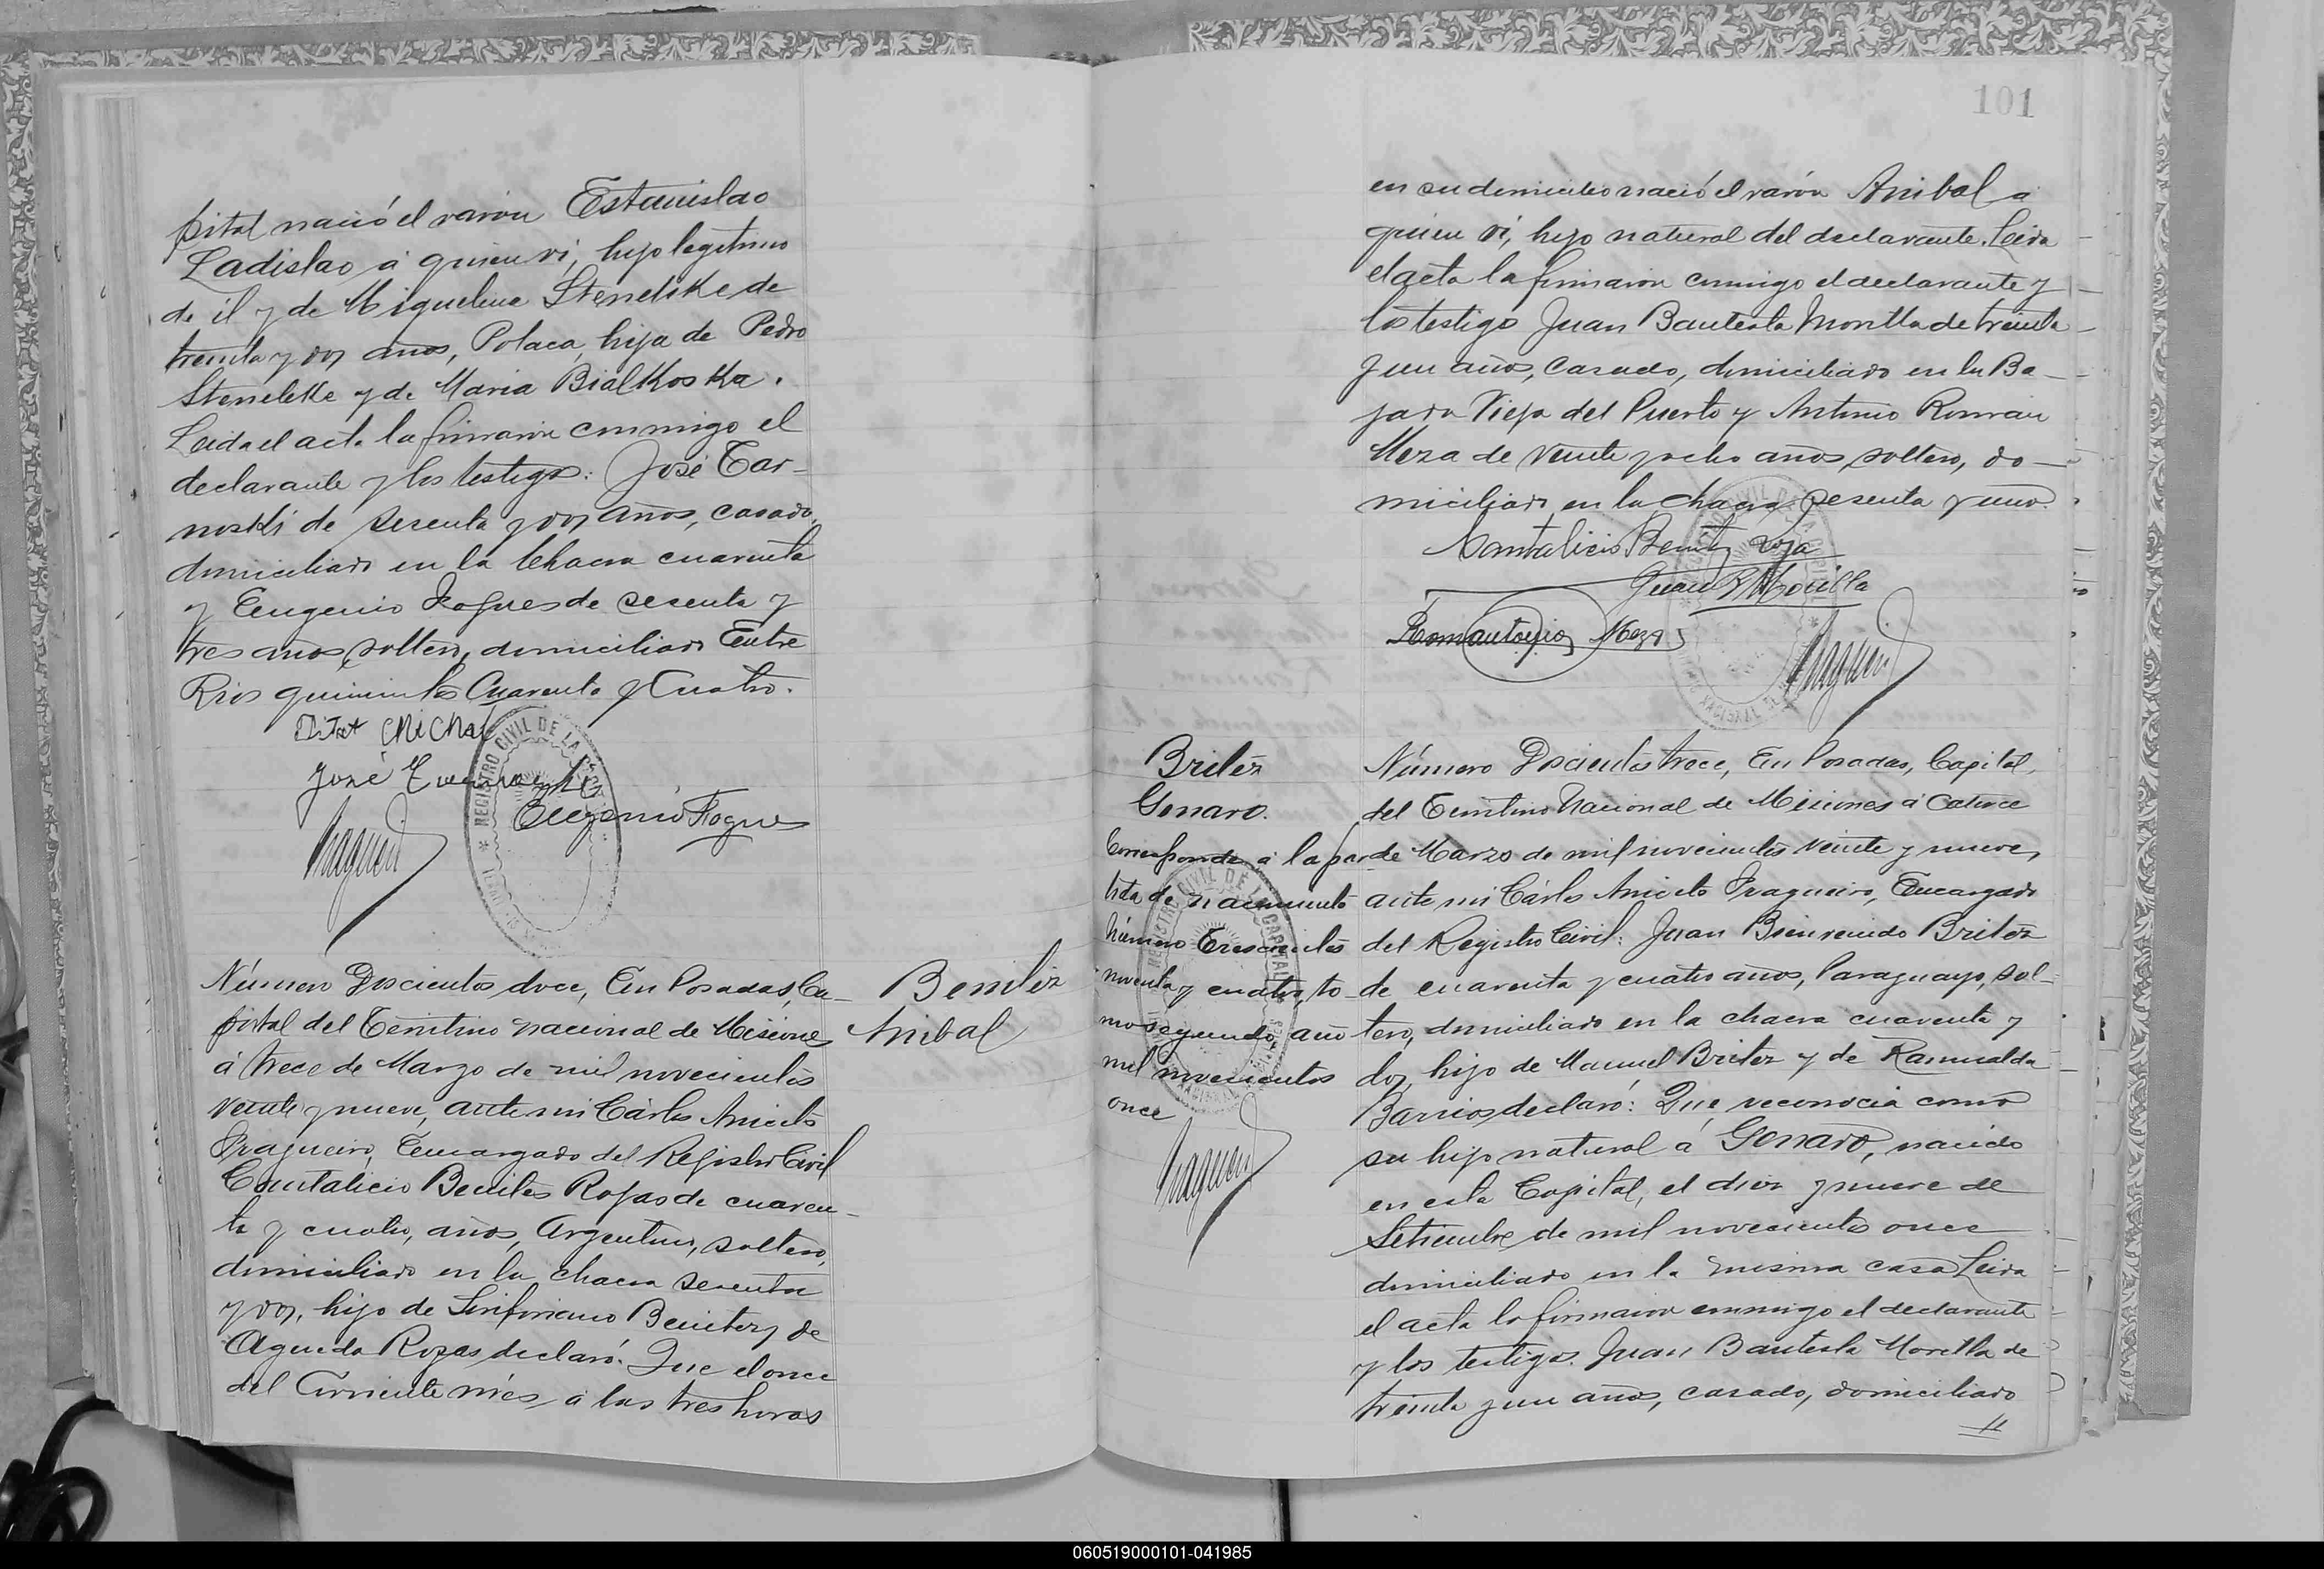 pital nació el varón Estanislao
Ladislao á quien vi, hijo legítimo
de él y de Miguelina Stenelske de
treinta y dos años, Polaca, hija de Pedro
Stenelske y de Maria Bialkoska.
Leida el acta la firmaron conmigo el
declarante y los testigos: José Tar-
noski de sesenta y dos años, casado,
domiciliado en la Chacra cuarenta
y Eugenio Fogues de sesenta y
tres años, soltero, domiciliado Entre
Rios quinientos Cuarenta y Cuatro.
José
Eugenio Fogues
REGISTRO CIVIL DE LA
Número Doscientos doce, En Posadas, Ca-
pital del Territorio Nacional de Misiones
á trece de Marzo de mil novecientos
veinte y nueve, ante mi Cárlos Aniceto
Fragueiro, Encargado del Registro Civil
Cantalicio Benites Rojas de cuaren-
ta y cuatro, años, Argentino, soltero,
domiciliado en la chacra sesenta
y dos, hijo de Sinforiano Benitez y de
Agueda Rojas declaró: Que el once
del Corriente mes, á las tres horas
Benitez
Anibal
101
en su domicilio nació el varón Anibal a
quien vi, hijo natural del declarante. Leida
el acta la firmaron conmigo el declarante y
los testigos Juan Bautista Morilla de treinta
y un años, Casado, domiciliado en la Ba-
jada Vieja del Puerto y Antonio Román
Meza de veinte y ocho años, soltero, do-
miciliado en la chacra sesenta y uno.
Cantalicio Benitez Roja
Juan B Morilla
Romantonio Meza
Britez
Genaro.
Corresponde á la par-
tida de nacimiento
número Trescientos
noventa y cuatro, to-
mo segundo, año
mil novecientos
once
REGISTRO CIVIL DE LA CAPITAL
Número Doscientos trece, En Posadas, Capital,
del Territorio Nacional de Misiones á Catorce
de Marzo de mil novecientos veinte y nueve,
ante mi Cárlos Aniceto Fragueiro, Encargado
del Registro Civil: Juan Bienvenido Britez
de cuarenta y cuatro años, Paraguayo, sol-
tero, domiciliado en la chacra cuarenta y
dos, hijo de Manuel Britez y de Ramualda
Barrios declaró: Que reconocia como
su hijo natural á Genaro, nacido
en esta Capital, el diez y nueve de
Setiembre de mil novecientos once
domiciliado en la misma casa Leida
el acta la firmaron conmigo el declarante
y los testigos. Juan Bautista Morilla de
treinta y un años, casado, domiciliado
060519000101-041985